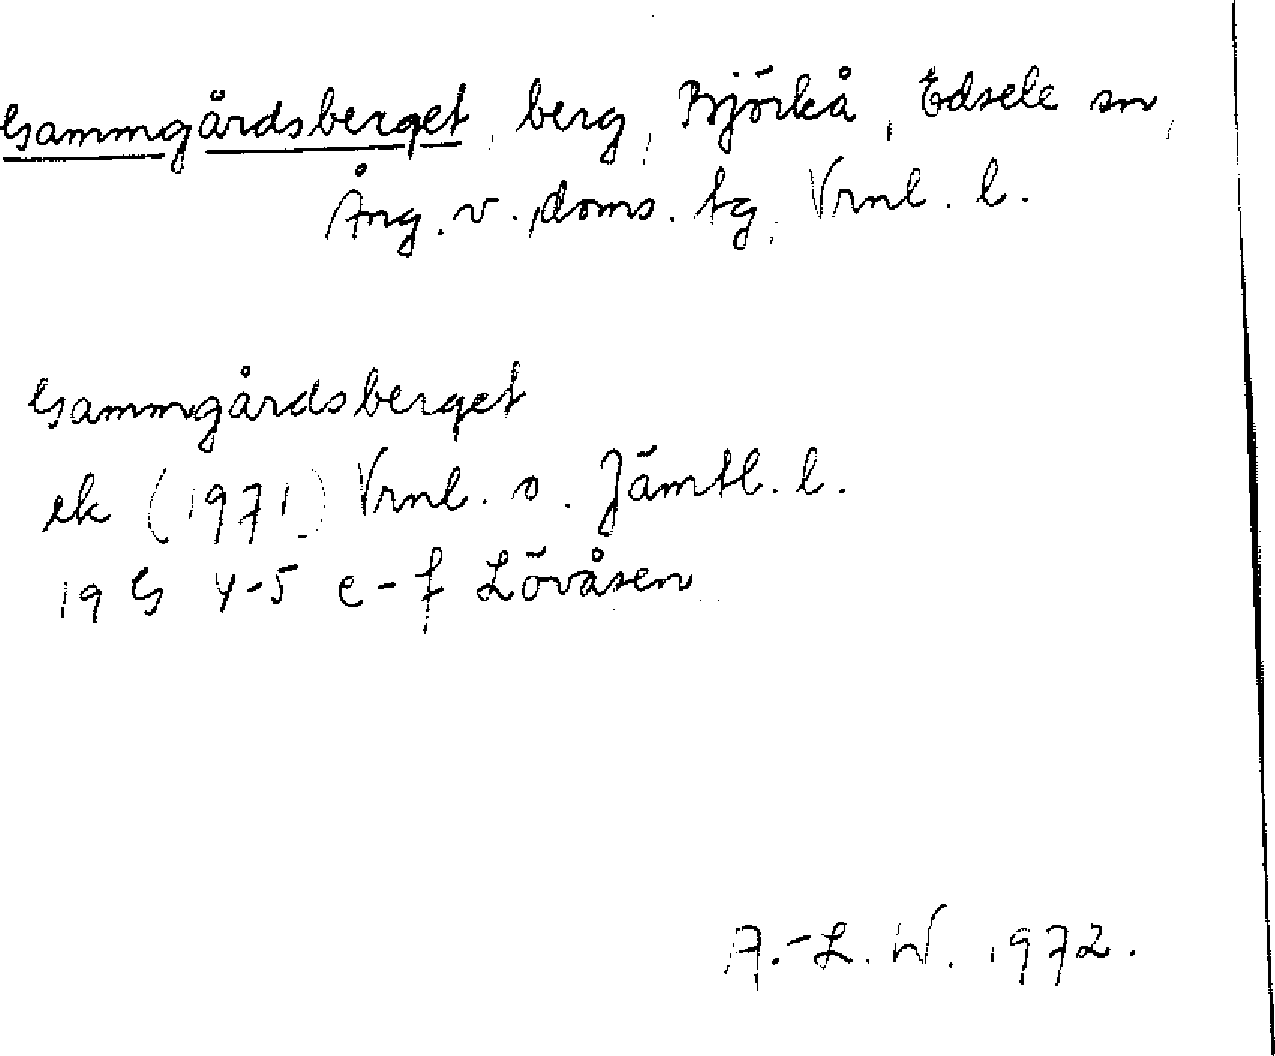 Gammgårdsberget, berg, Björkå, Edsele sn,
Ång. v. doms. tg, Vrnl. l.
Gammgårdsberget
ek (1971) Vrnl. o. Jämtl. l.
19 G 4-5 e-f Lövåsen
A.-L. W. 1972.